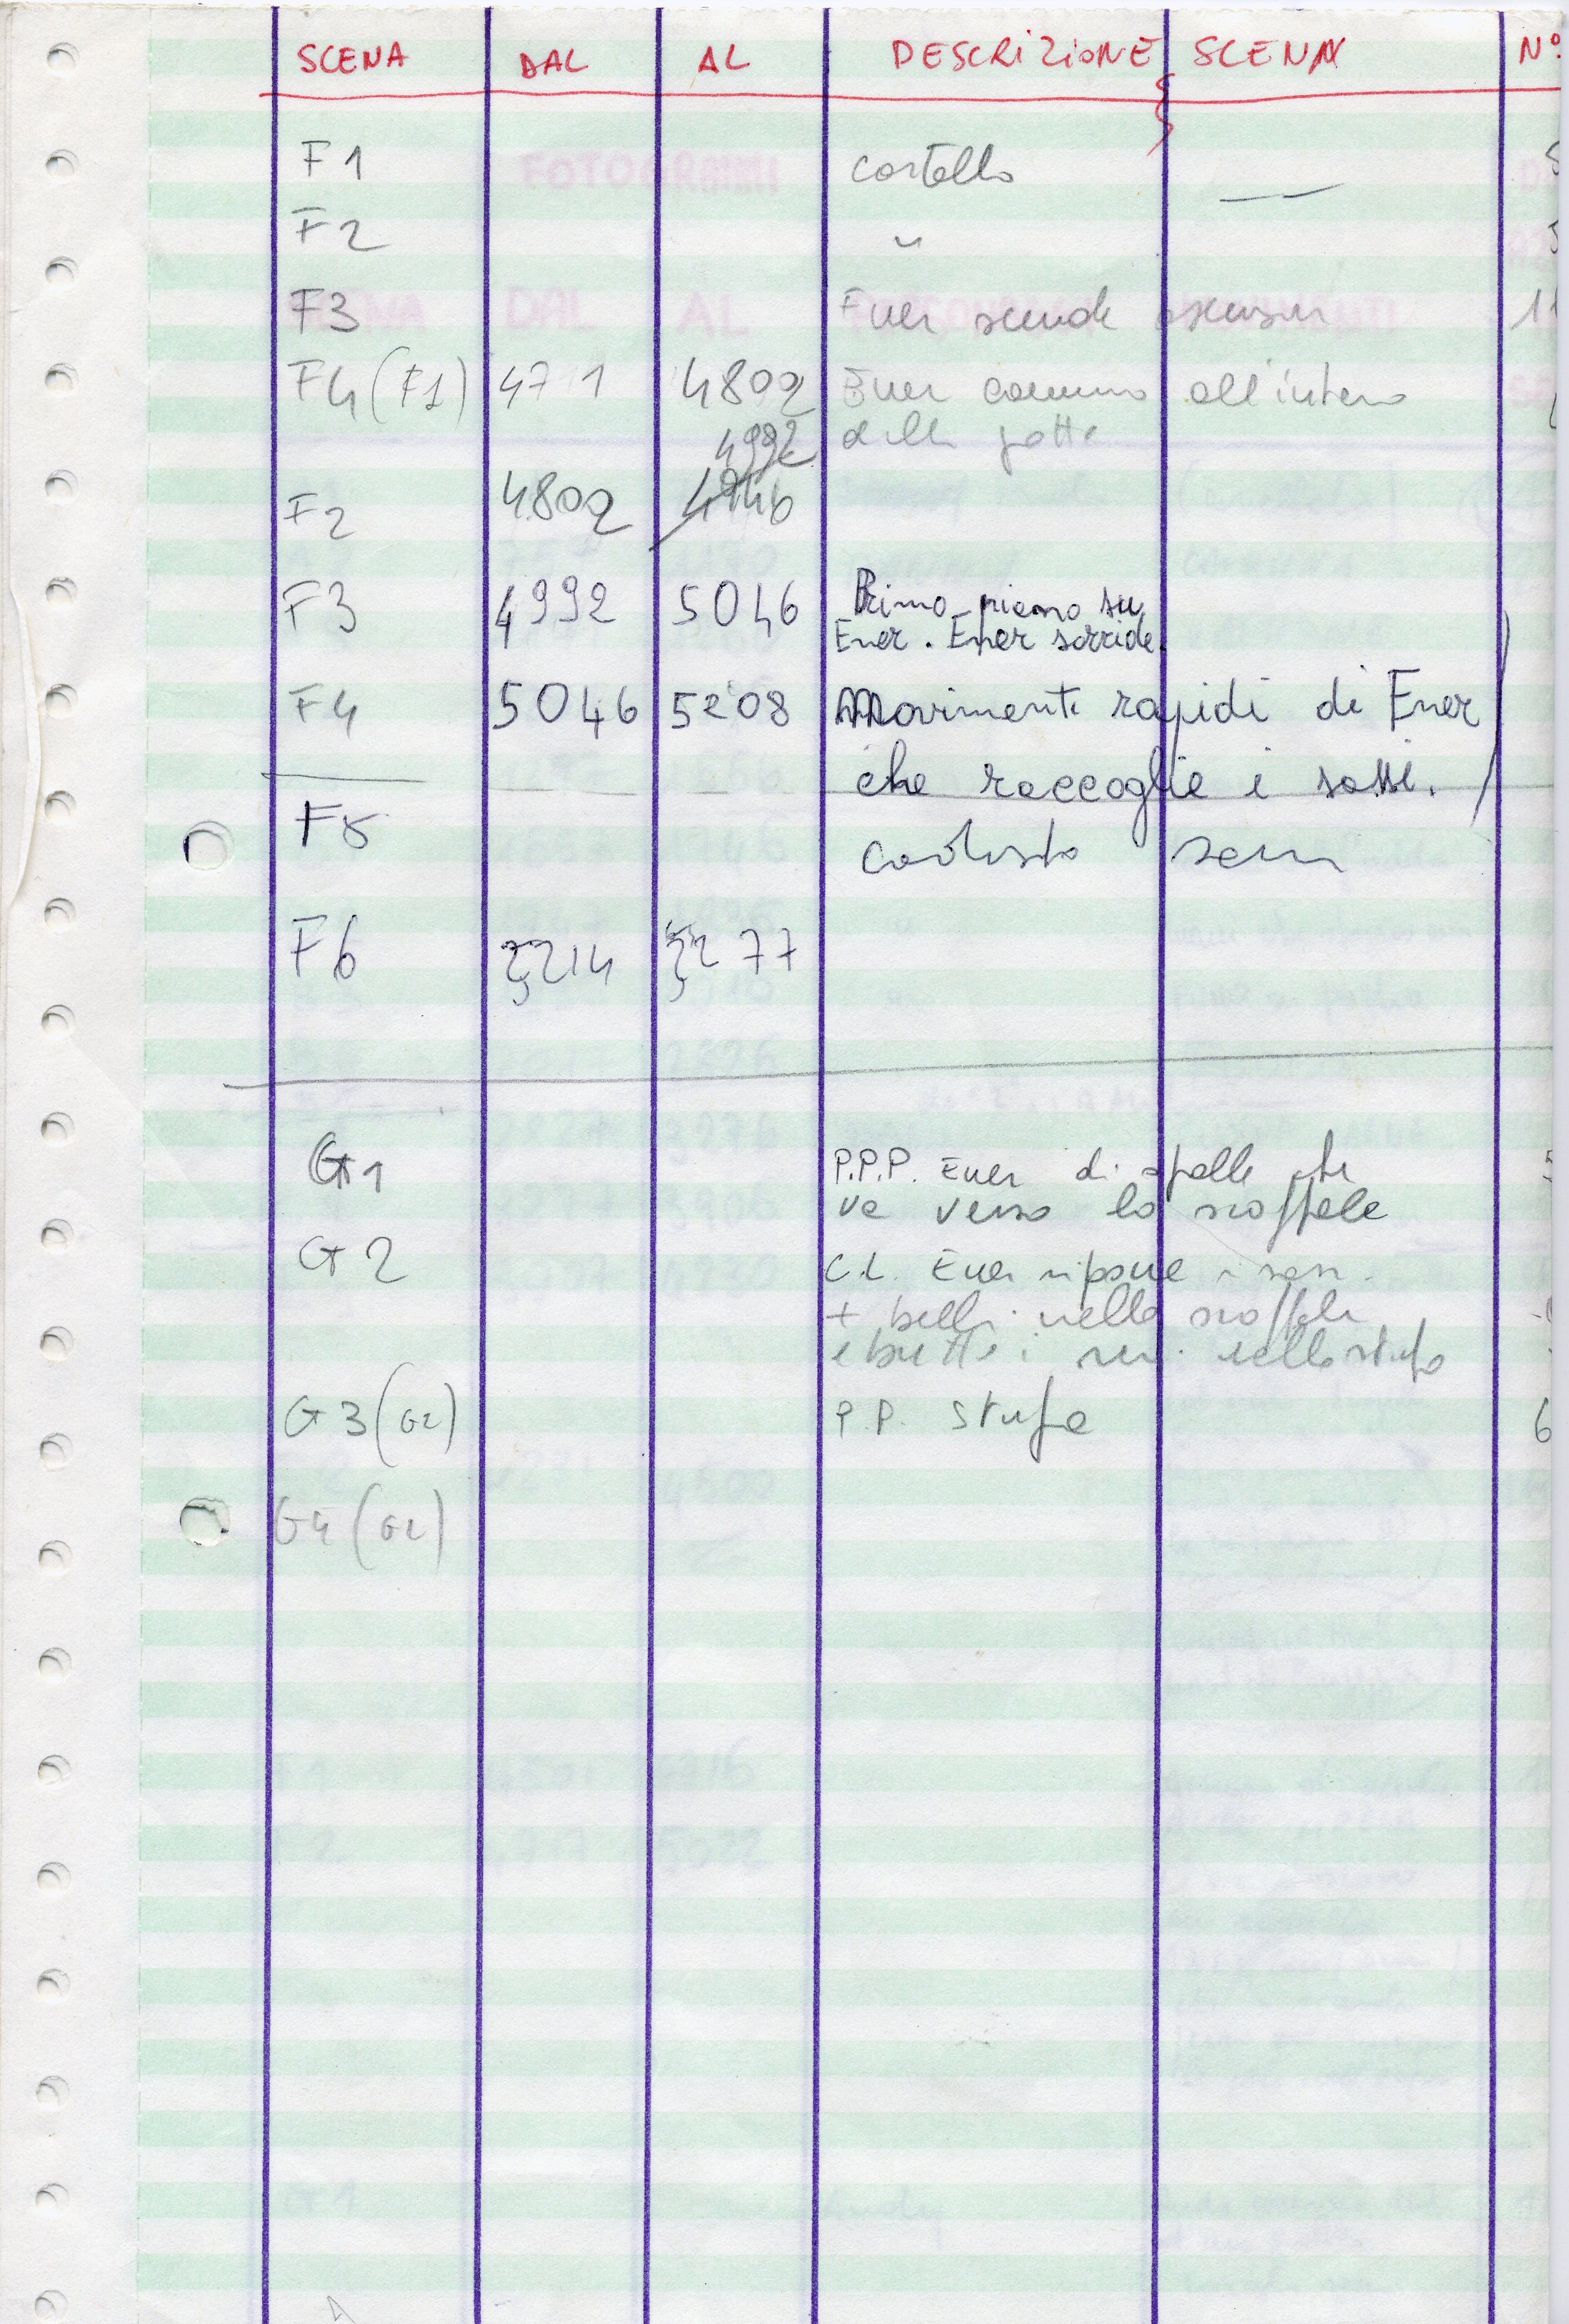 SCENA DAL AL DESCRIZIONE SCENA N°
F1 cartello —
F2 "
F3 Ener scende
F4 (F1) 47 1 4802 Ener cammina all'interno
4992 della grotta
F2 4802 4946
F3 4992 5046 Primo piano su
Ener. Ener sorride.
F4 5046 5208 Movimenti rapidi di Ener
che raccoglie i sassi.
F5
F6 5214 5277
G1 P.P.P. Ener di spalle che
va verso lo scaffale
G2 C.L. Ener ripone i sassi
+ belli nello scaffale
e butta i nella stufa
G3 (G2) P.P. stufa 6
G4 (G2)